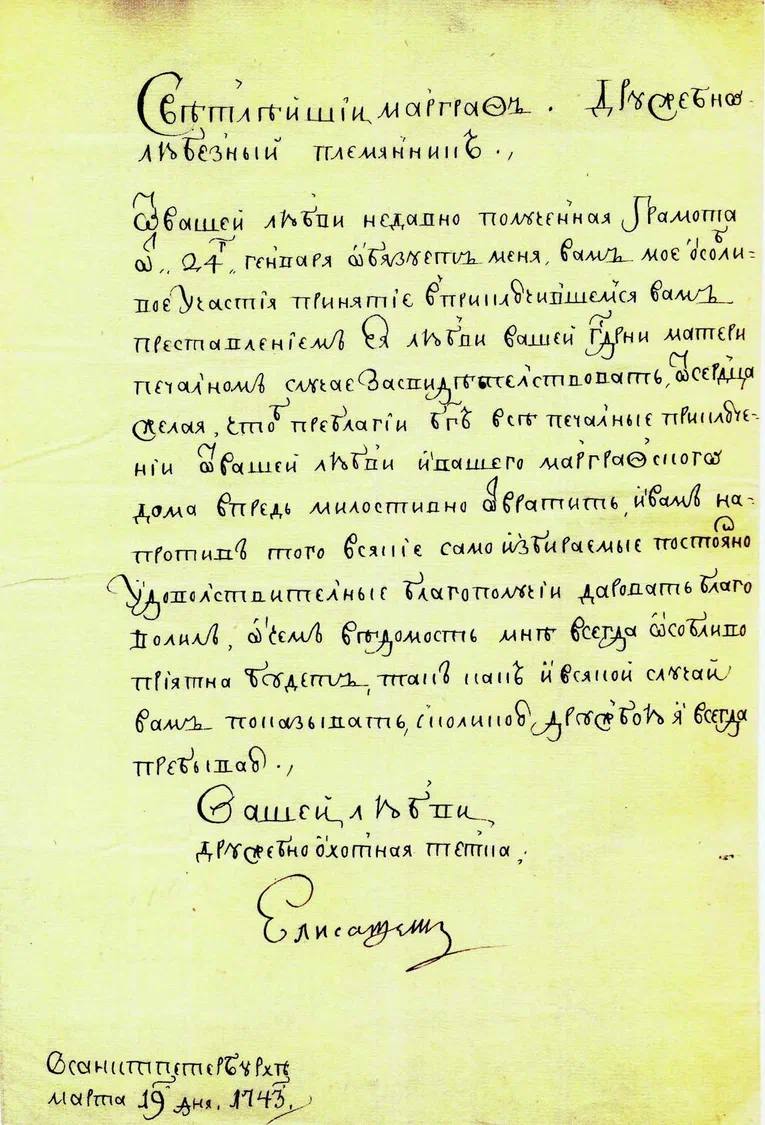 Свѣтлѣйшіи маргραѳъ. Дружебно
любезный племянникъ.,
Ѿвашей любви недавно полученная Грамота
ѿ„ 24г„ генваря ѡбязуетъ меня, вамъ мое ѻсобли-
вое участія принятіе вприключившемся вамъ
преставленіемъ Ея любви вашей Гдрни матери
печалномъ случае Засвидѣтелствовать, Ѿсердца
желая, чтоб преблагіи бгъ всѣ печалные приключе-
ніи Ѿвашей любви ивашего марграѳскогѡ
дома впредь милостивно Ѿвратить, ивамъ на-
противъ того всякіе само избираемые постоянно
Удоволствителные благополучіи даровать благо
волилъ, ѡчемъ вѣдомость мнѣ всегда ѡсобливо
пріятна будетъ, такъ какъ ивсякой случай
вамъ показывать, сколикою дружбою я всегда
пребываю.,
Вашей любви
дружебно ѻхотная тетка,
Елисаветъ
Всанктпетербурхѣ
марта 19г дня. 1743г.